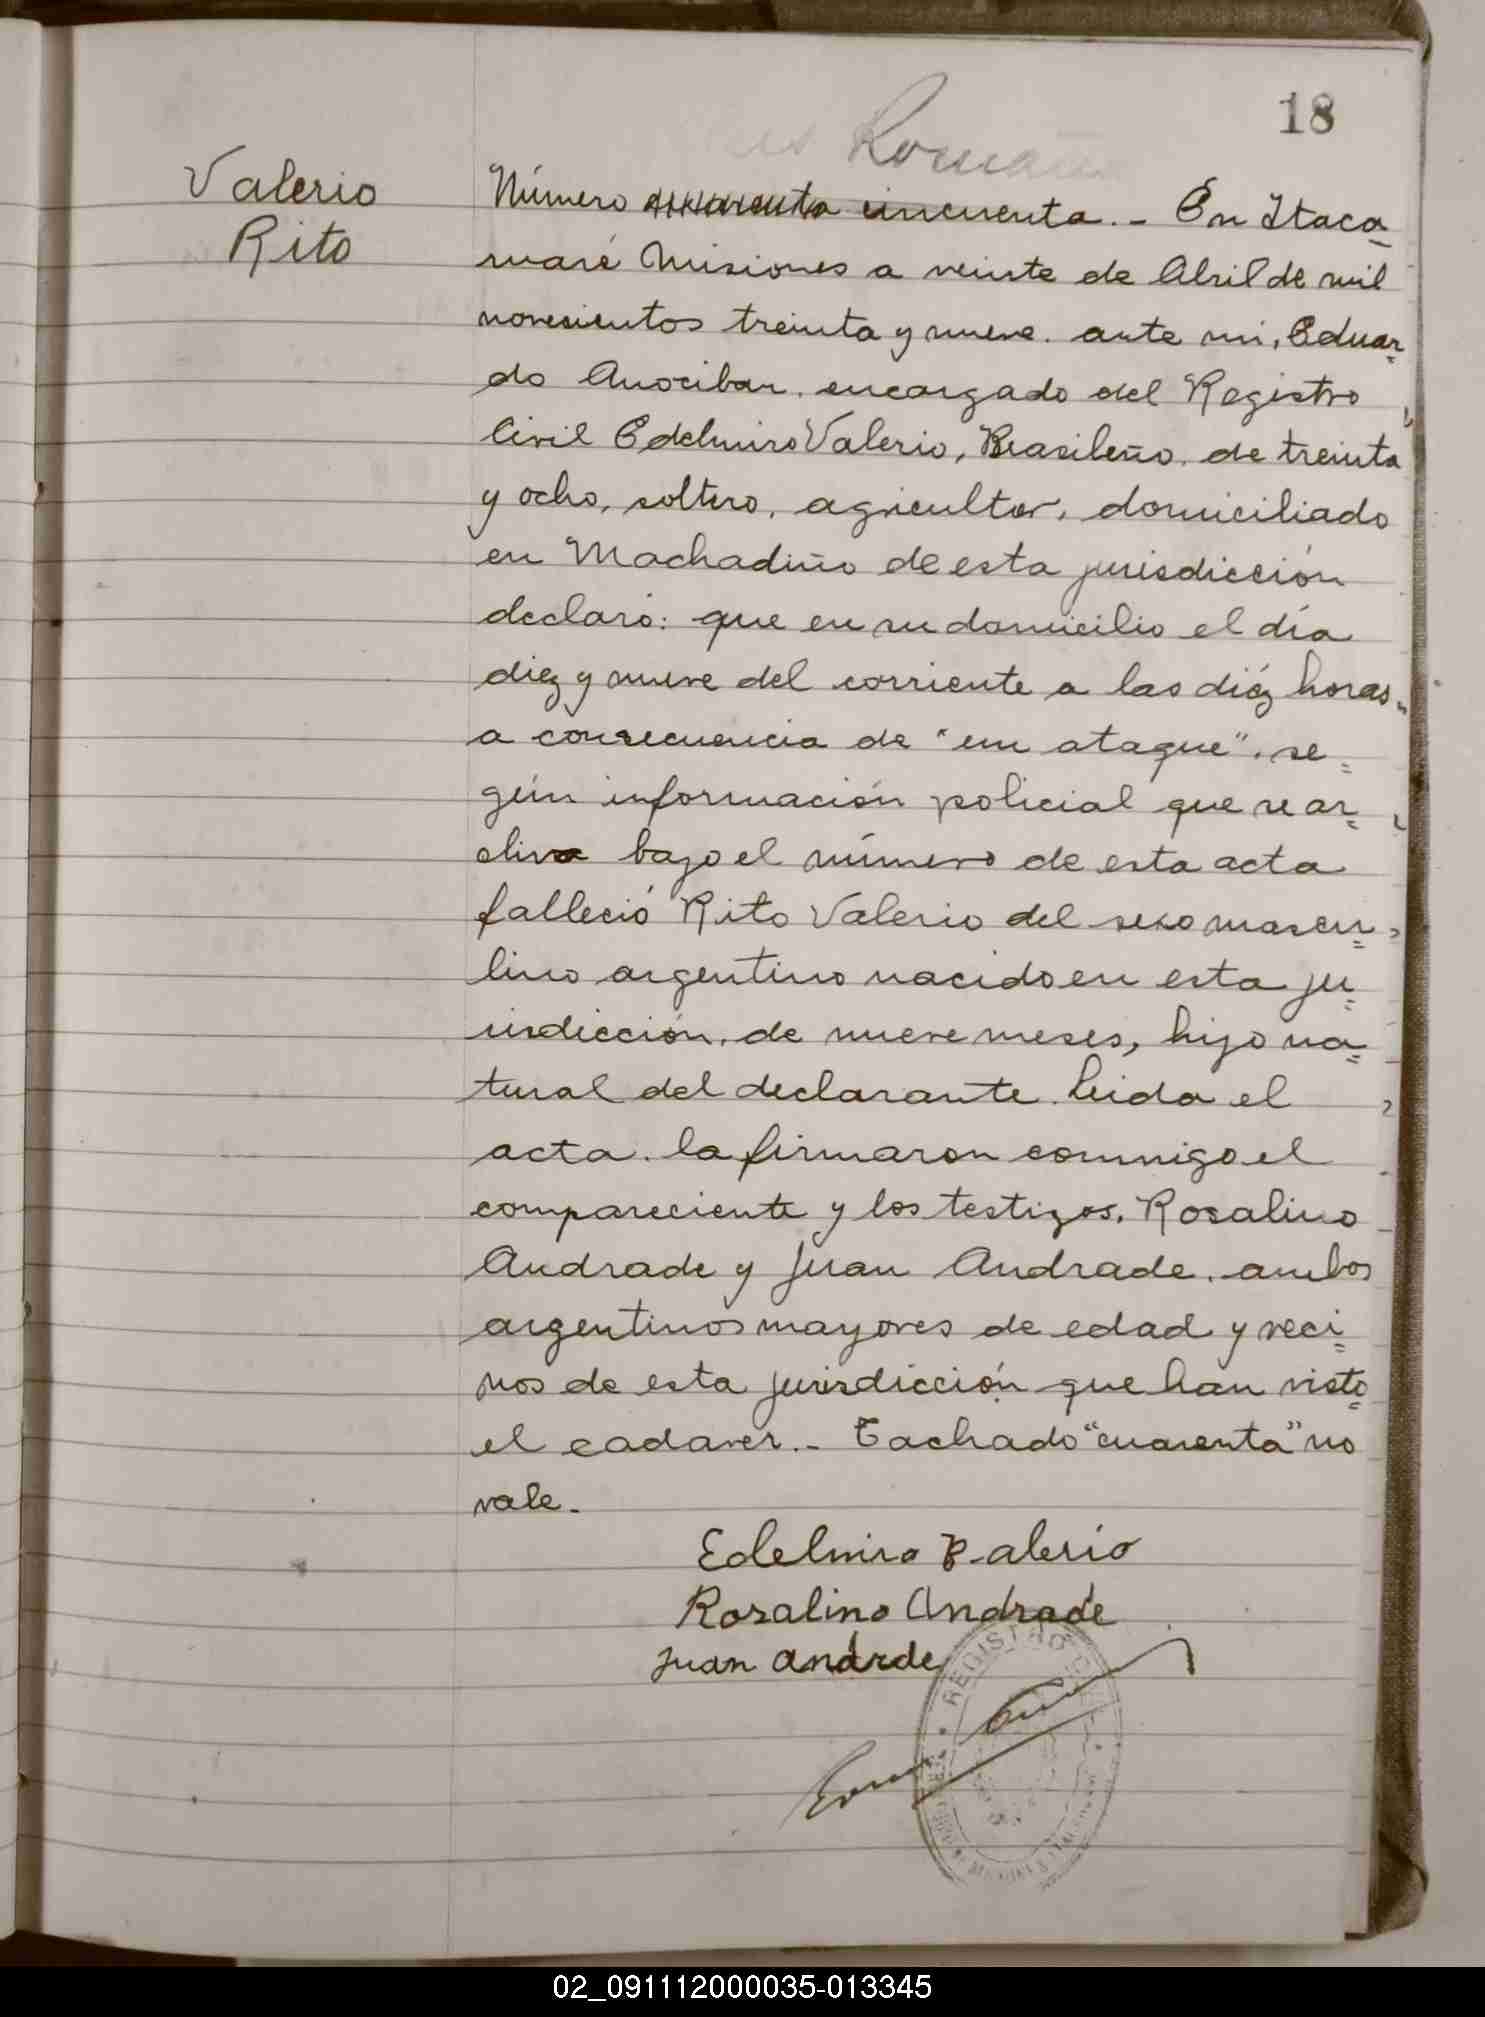 18
Romaña
Valerio
Rito
Número cuarenta cincuenta.- En Itaca-
ruaré Misiones a veinte de Abril de mil
novecientos treinta y nueve. ante mi, Eduar=
do Anocibar. encargado del Registro
Civil Edelmiro Valerio, Brasileño. de treinta
y ocho, soltero, agricultor, domiciliado
en Machadiño de esta jurisdicción
declaró: que en su domicilio el día
diez y nueve del corriente a las diéz horas
a consecuencia de "un ataque". se=
gún información policial que se ar=
chiva bajo el número de esta acta
falleció Rito Valerio del sexo mascu=
lino argentino nacido en esta ju=
risdicción. de nueve meses, hijo na=
tural del declarante. Leida el
acta. la firmaron conmigo el
compareciente y los testigos. Rosalino
Andrade y Juan Andrade. ambos
argentinos mayores de edad y veci=
nos de esta jurisdicción que han visto
el cadaver.- Tachado "cuarenta" no
vale-
Edelmiro Balerio
Rosalino Andrade
Juan Andrde
REGISTRO
02_091112000035-013345